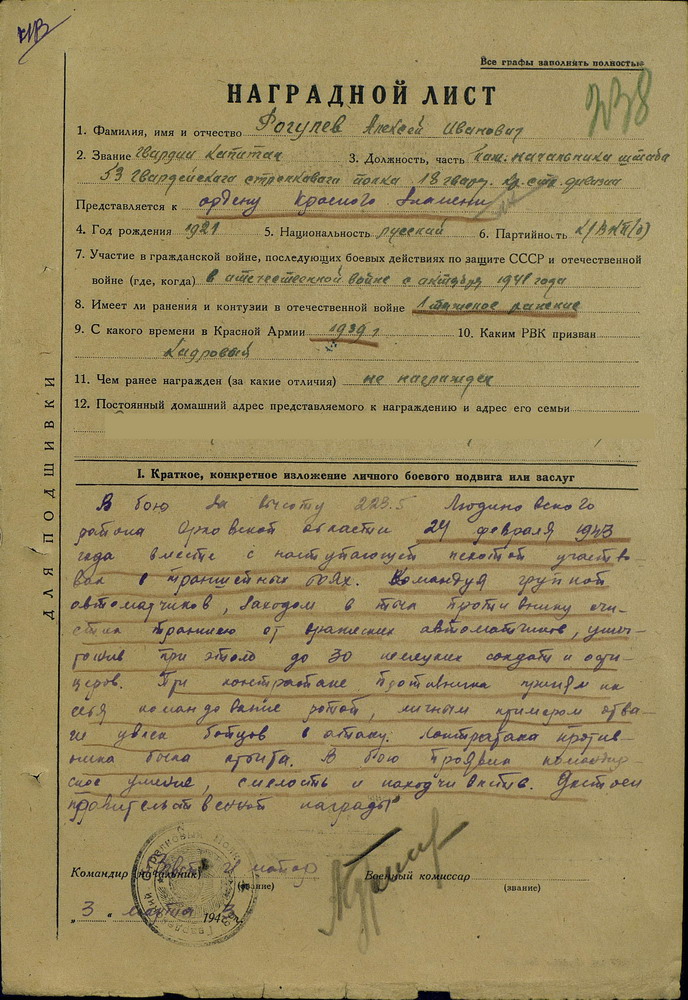 Все графы заполнять полностью
НАГРАДНОЙ ЛИСТ
238
1. Фамилия, имя и отчество Рогулев Алексей Иванович
2. Звание Гвардии капитан 3. Должность, часть пом. начальника штаба
53 гвардейского стрелкового полка 18 гвард. кр. стр. дивизии
Представляется к ордену Красного Знамени
4. Год рождения 1921 5. Национальность русский 6. Партийность к/ВКП(б)
7. Участие в гражданской войне, последующих боевых действиях по защите СССР и отечественной
войне (где, когда) в отечественной войне с октября 1941 года
8. Имеет ли ранения и контузии в отечественной войне 1 тяжелое ранение
9. С какого времени в Красной Армии 1939 г 10. Каким РВК призван
Кадровый
11. Чем ранее награжден (за какие отличия) не награжден
12. Постоянный домашний адрес представляемого к награждению и адрес его семьи
ДЛЯ ПОДШИВКИ
I. Краткое, конкретное изложение личного боевого подвига или заслуг
В бою за высоту 223.5 Людиновского
района Орловской области 24 февраля 1943
года вместе с наступающей пехотой участво-
вал в траншейных боях. Командуя группой
автоматчиков, заходом в тыл противнику очи-
стил траншею от вражеских автоматчиков, уничто-
тожив при этом до 30 немецких солдат и офи-
церов. При контратаке противника принял на
себя командование ротой, личным примером отва-
ги увлек бойцов в атаку. Контратака против-
ника была отбита. В бою проявил командир-
ское умение, смелость и находчивость. Достоен
правительственной награды
Командир (начальник) майор Военный комиссар
(звание) (звание)
„3" марта 1943